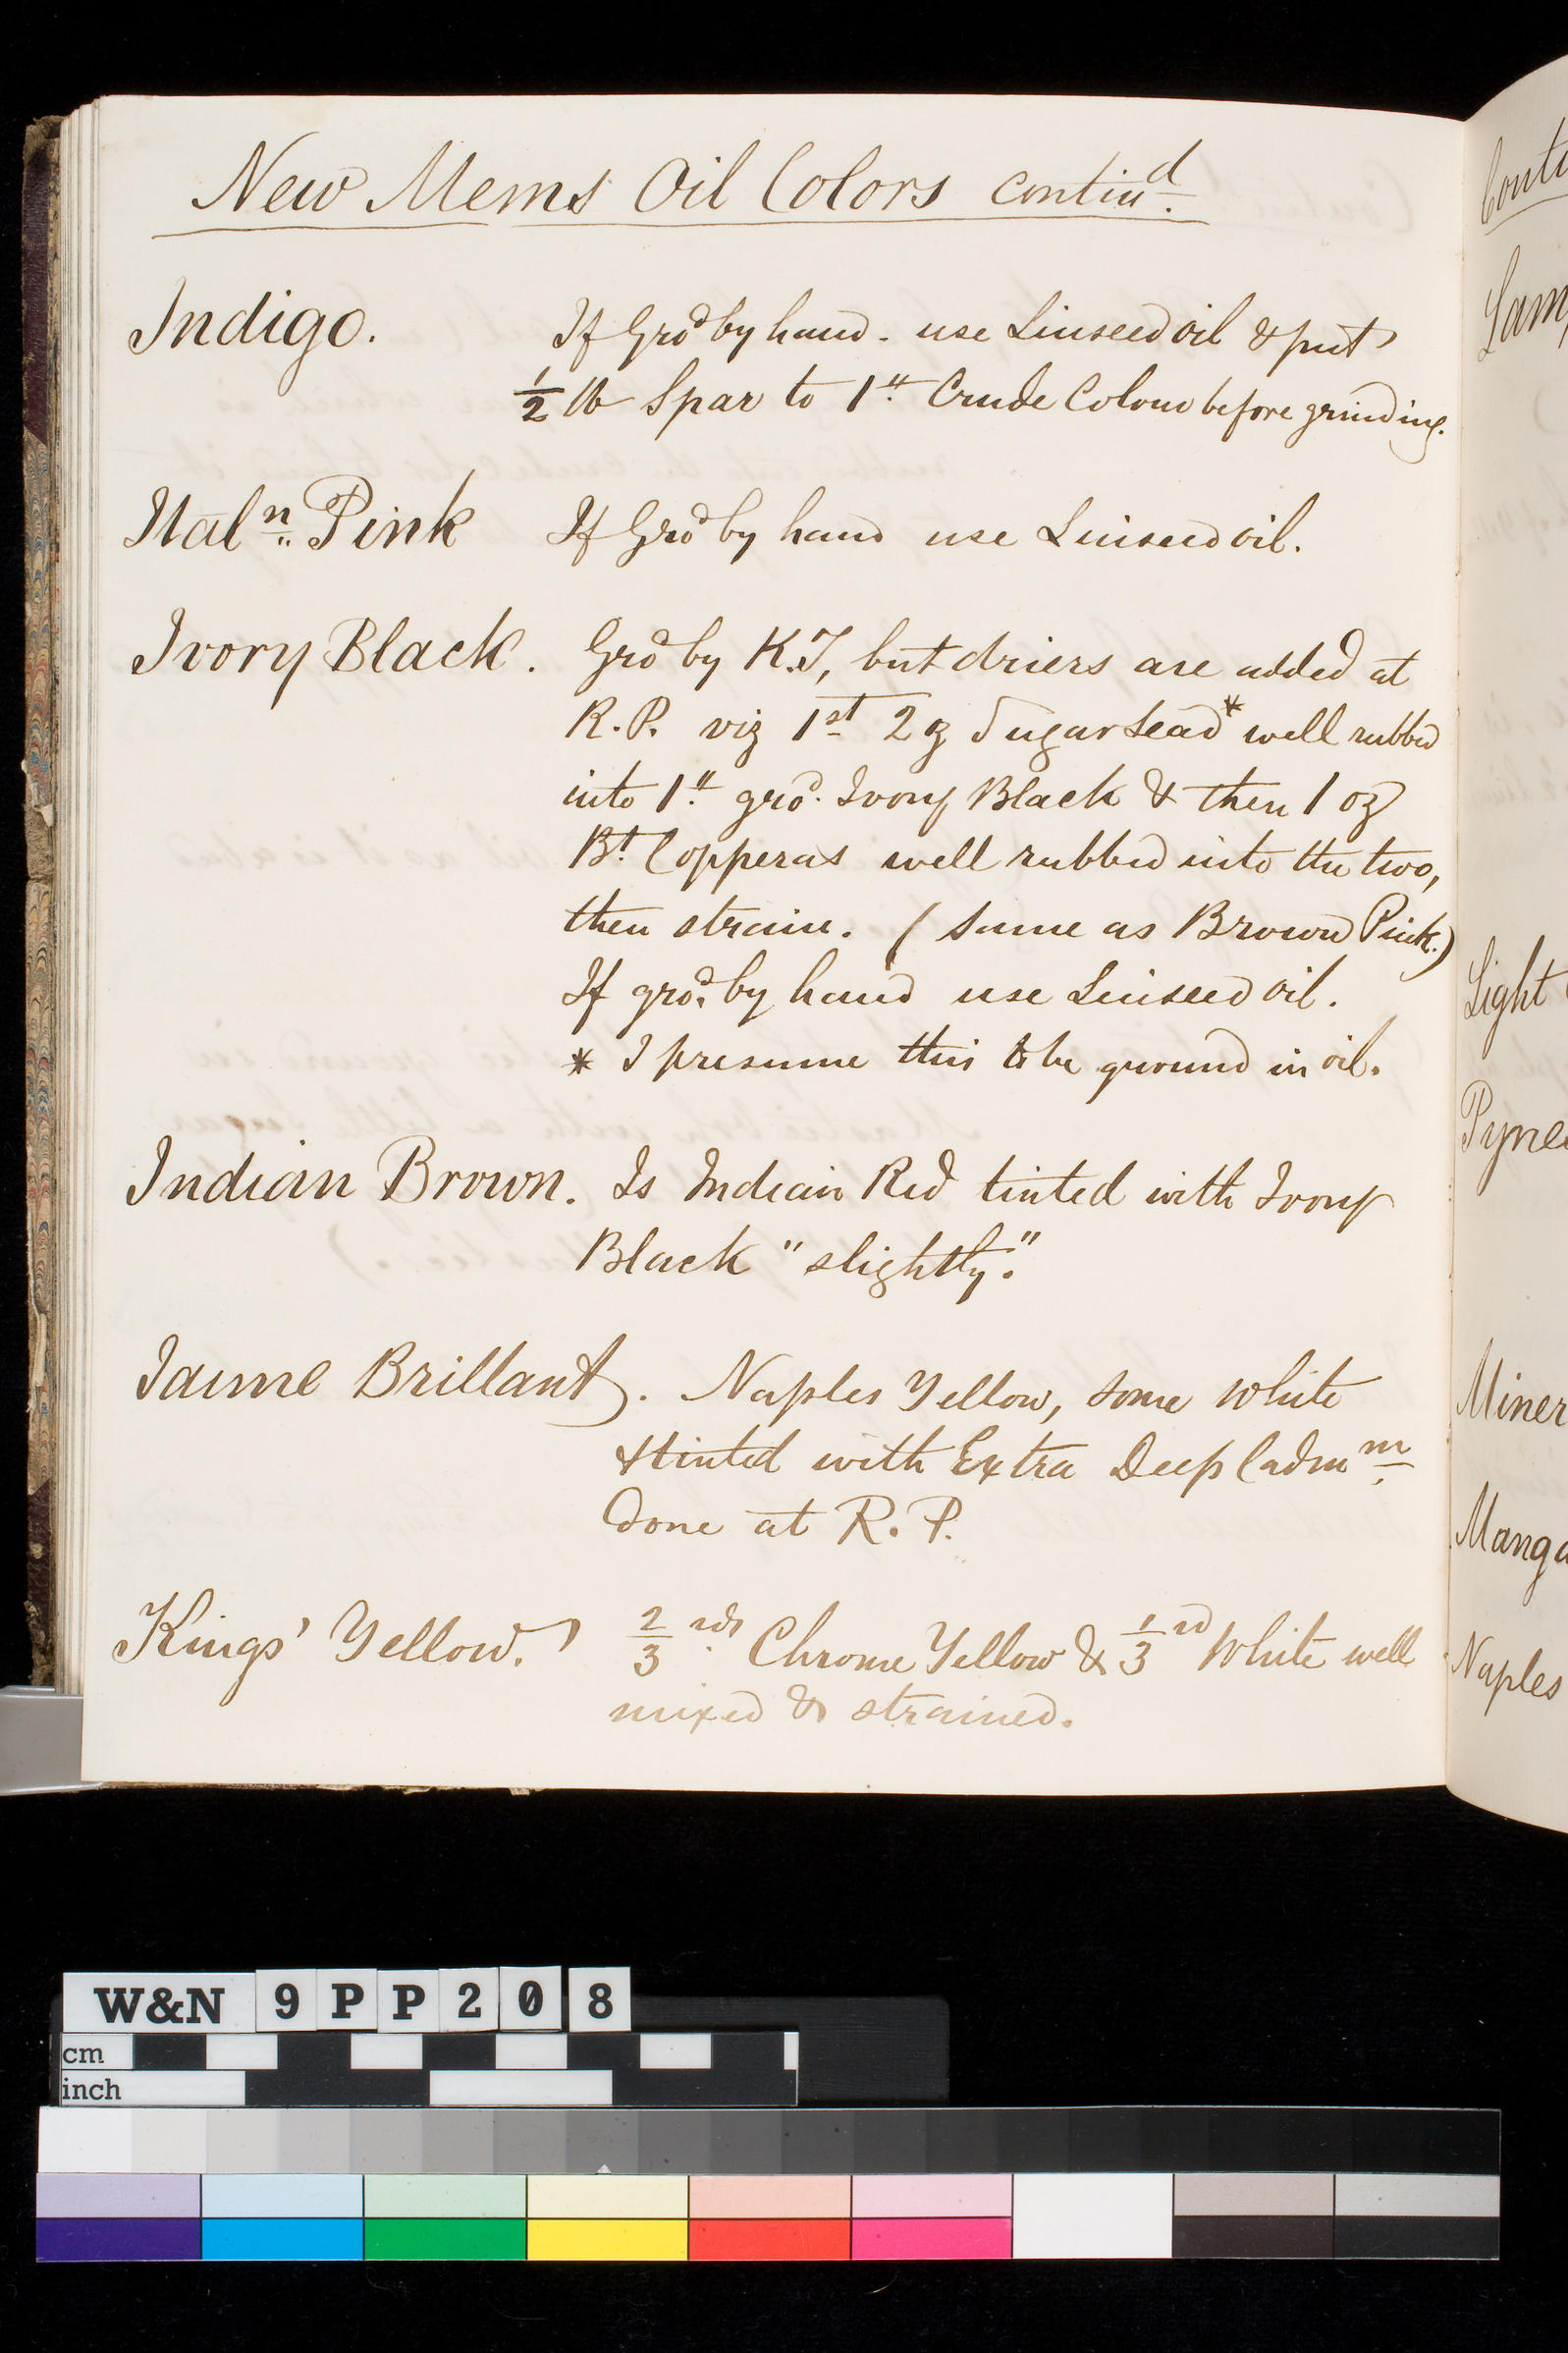 New Mems Oil Colors contin^d.
Indigo. If Gro^d by hand - use Linseed oil & put
1/2 lb Spar to 1 lb Crude Colour before grinding.
Ital^n. Pink If Gro^d by hand use Linseed oil.
Ivory Black. Gro^d by K.T, but driers are added at
R.P. viz 1^st 2 oz Sugar Lead* well rubbed
into 1 lb gro^d. Ivory Black & then 1 oz
B^t. Copperas well rubbed into the two,
then strain. (Same as Brown Pink.)
If gro^d. by hand use Linseed oil.
* I presume this to be ground in oil.
Indian Brown. Is Indian Red tinted with Ivory
Black "slightly."
Jaune Brillant. Naples Yellow, some White
& tinted with Extra Deep Cadm^m.
done at R.P.
Kings' Yellow. 2/3^rds Chrome Yellow & 1/3^rd White well
mixed & strained.
Conti
Lam
Light
Pyne
Miner
Manga
Naples
W&N 9PP208
cm
inch